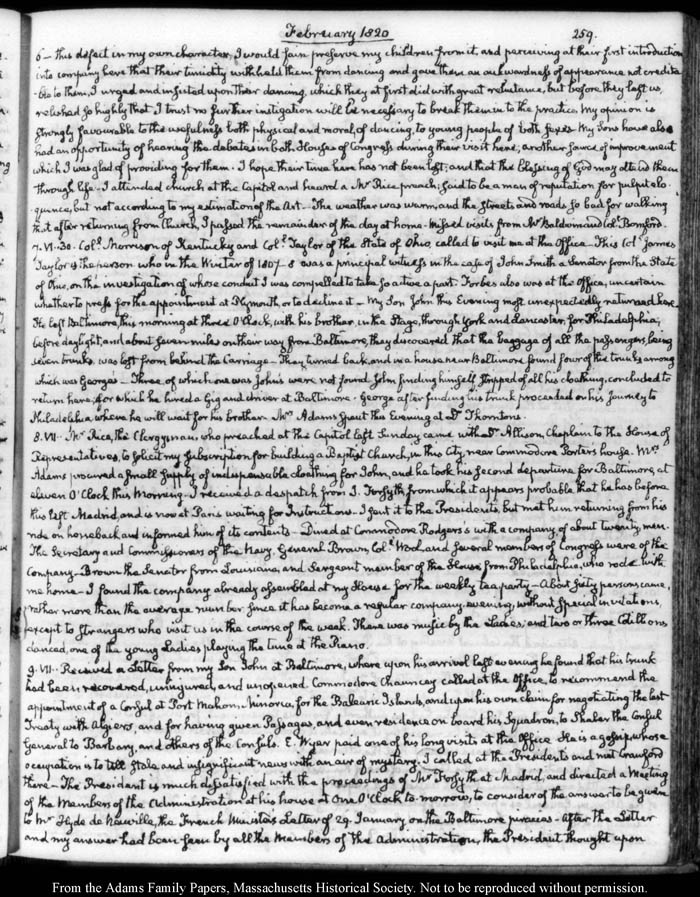 February 1820
259.
6 — this defect in my own character, I would fain preserve my children from it, and perceiving at their first introduction
into company here that their timidity withheld them from dancing and gave them an awkwardness of appearance not credita-
-ble to them, I urged and insisted upon their dancing, which they at first did with great reluctance, but before they left us,
relished so highly that I trust no further instigation will be necessary to break them in to the practice. My opinion is
strongly favourable to the usefulness both physical and moral, of dancing, to young people of both sexes. My Sons have also
had an opportunity of hearing the debates in both Houses of Congress during their visit here, another source of improvement
which I was glad of providing for them. I hope their time here has not been lost, and that the blessing of God may attend them
through life. I attended church at the Capitol and heard a Mr Rice preach; said to be a man of reputation for pulpit elo-
quence, but not according to my estimation of the Art. The weather was warm, and the Streets and roads so bad for walking
that after returning from Church, I passed the remainder of the day at home. Missed visits from Mr Baldwin and Colo. Bomford.
7. VI:30. Colo. Morrison of Kentucky and Colo. Taylor of the State of Ohio, called to visit me at the Office. This Colo. James
Taylor is the person who in the Winter of 1807-8 was a principal witness in the case of John Smith a Senator from the State
of Ohio, on the investigation of whose conduct I was compelled to take so active a part. Forbes also was at the Office, uncertain
whether to press for the appointment at Plymouth or to decline it — My Son John this Evening most unexpectedly returned here.
He left Baltimore, this morning at three O'Clock, with his brother, in the Stage, through York and Lancaster, for Philadelphia;
before daylight, and about seven miles on their way from Baltimore, they discovered that the baggage of all the passengers, being
seven trunks was lost from behind the Carriage — They turned back and in a house near Baltimore found four of the trunks among
which was George's — Three, of which one was John's were not found. John finding himself stripped of all his cloathing, concluded to
return here; for which he hired a Gig and driver at Baltimore. George after finding his trunk proceeded on his journey to
Philadelphia where he will wait for his brother. Mrs Adams spent this Evening at Dr Thornton's.
8. VII. Mr Rice, the Clergyman who preached at the Capitol last Sunday came with Dr Allison, Chaplain to the House of
Representatives, to solicit my subscription for building a Baptist Church, in this City, near Commodore Porter's house. Mrs
Adams procured a small supply of indispensable cloathing for John, and he took his second departure for Baltimore, at
eleven O'Clock this Morning. I received a despatch from J. Forsyth, from which it appears probable that he has before
this left Madrid, and is now at Paris waiting for Instructions. I sent it to the President's, but met him returning from his
ride on horseback and informed him of its contents — Dined at Commodore Rodgers's with a company of about twenty men.
The Secretary and Commissioners of the Navy, General Brown, Colo. Wool, and several members of Congress were of the
Company. Brown the Senator from Louisiana, and Sergeant member of the House from Philadelphia, who rode with
me home — I found the company already assembled at my House for the weekly tea party — About sixty persons came,
rather more than the average number since it has become a regular company evening, without special invitations,
except to Strangers who visit us in the course of the week. There was music by the Ladies, and two or three Cotillons,
danced, one of the young Ladies playing the tune at the Piano.
9. VII. Received a Letter from my Son John at Baltimore, where upon his arrival last evening he found that his trunk
had been recovered, uninjured, and unopened. Commodore Chauncey called at the Office, to recommend the
appointment of a Consul at Port Mahon, Minorca, for the Balearic Islands, and upon his own claim for negotiating the last
Treaty with Algiers, and for having given Passages, and even residence on board his Squadron, to Shaler the Consul
General to Barbary, and others of the Consuls. E. Wyer paid one of his long visits at the Office. He is a gossip, whose
occupation is to tell stale, and insignificant news with an air of mystery. I called at the President's and met Crawford
there — The President is much dissatisfied with the proceedings of Mr Forsyth at Madrid, and directed a Meeting
of the Members of the Administration at his house at One O'Clock to-morrow, to consider of the answer to be given
to Mr Hyde de Neuville, the French Minister's Letter of 29. January, on the Baltimore piracies. After the Letter
and my answer had been seen by all the Members of the Administration, the President thought upon
From the Adams Family Papers, Massachusetts Historical Society. Not to be reproduced without permission.